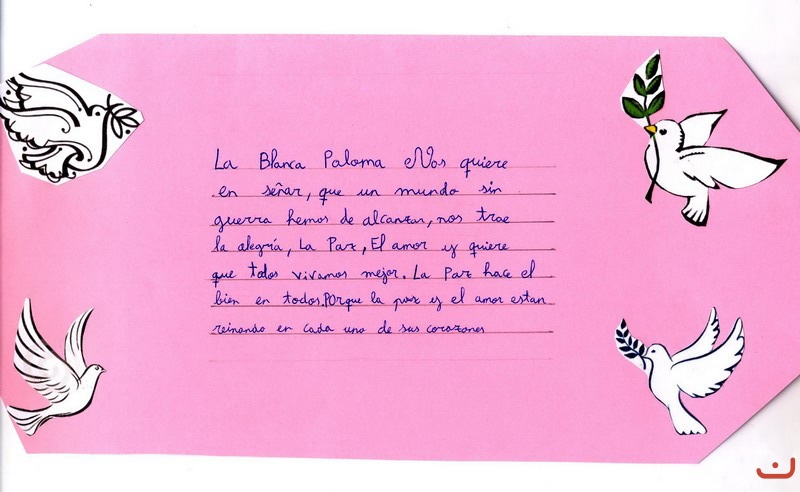 La Blanca Paloma Nos quiere
en señar, que un mundo sin
guerra hemos de alcanzar, nos trae
la alegría, La Paz, El amor y quiere
que todos vivamos mejor. La Paz hace el
bien en todos.POrque la paz y el amor estan
reinando en cada uno de sus corazones